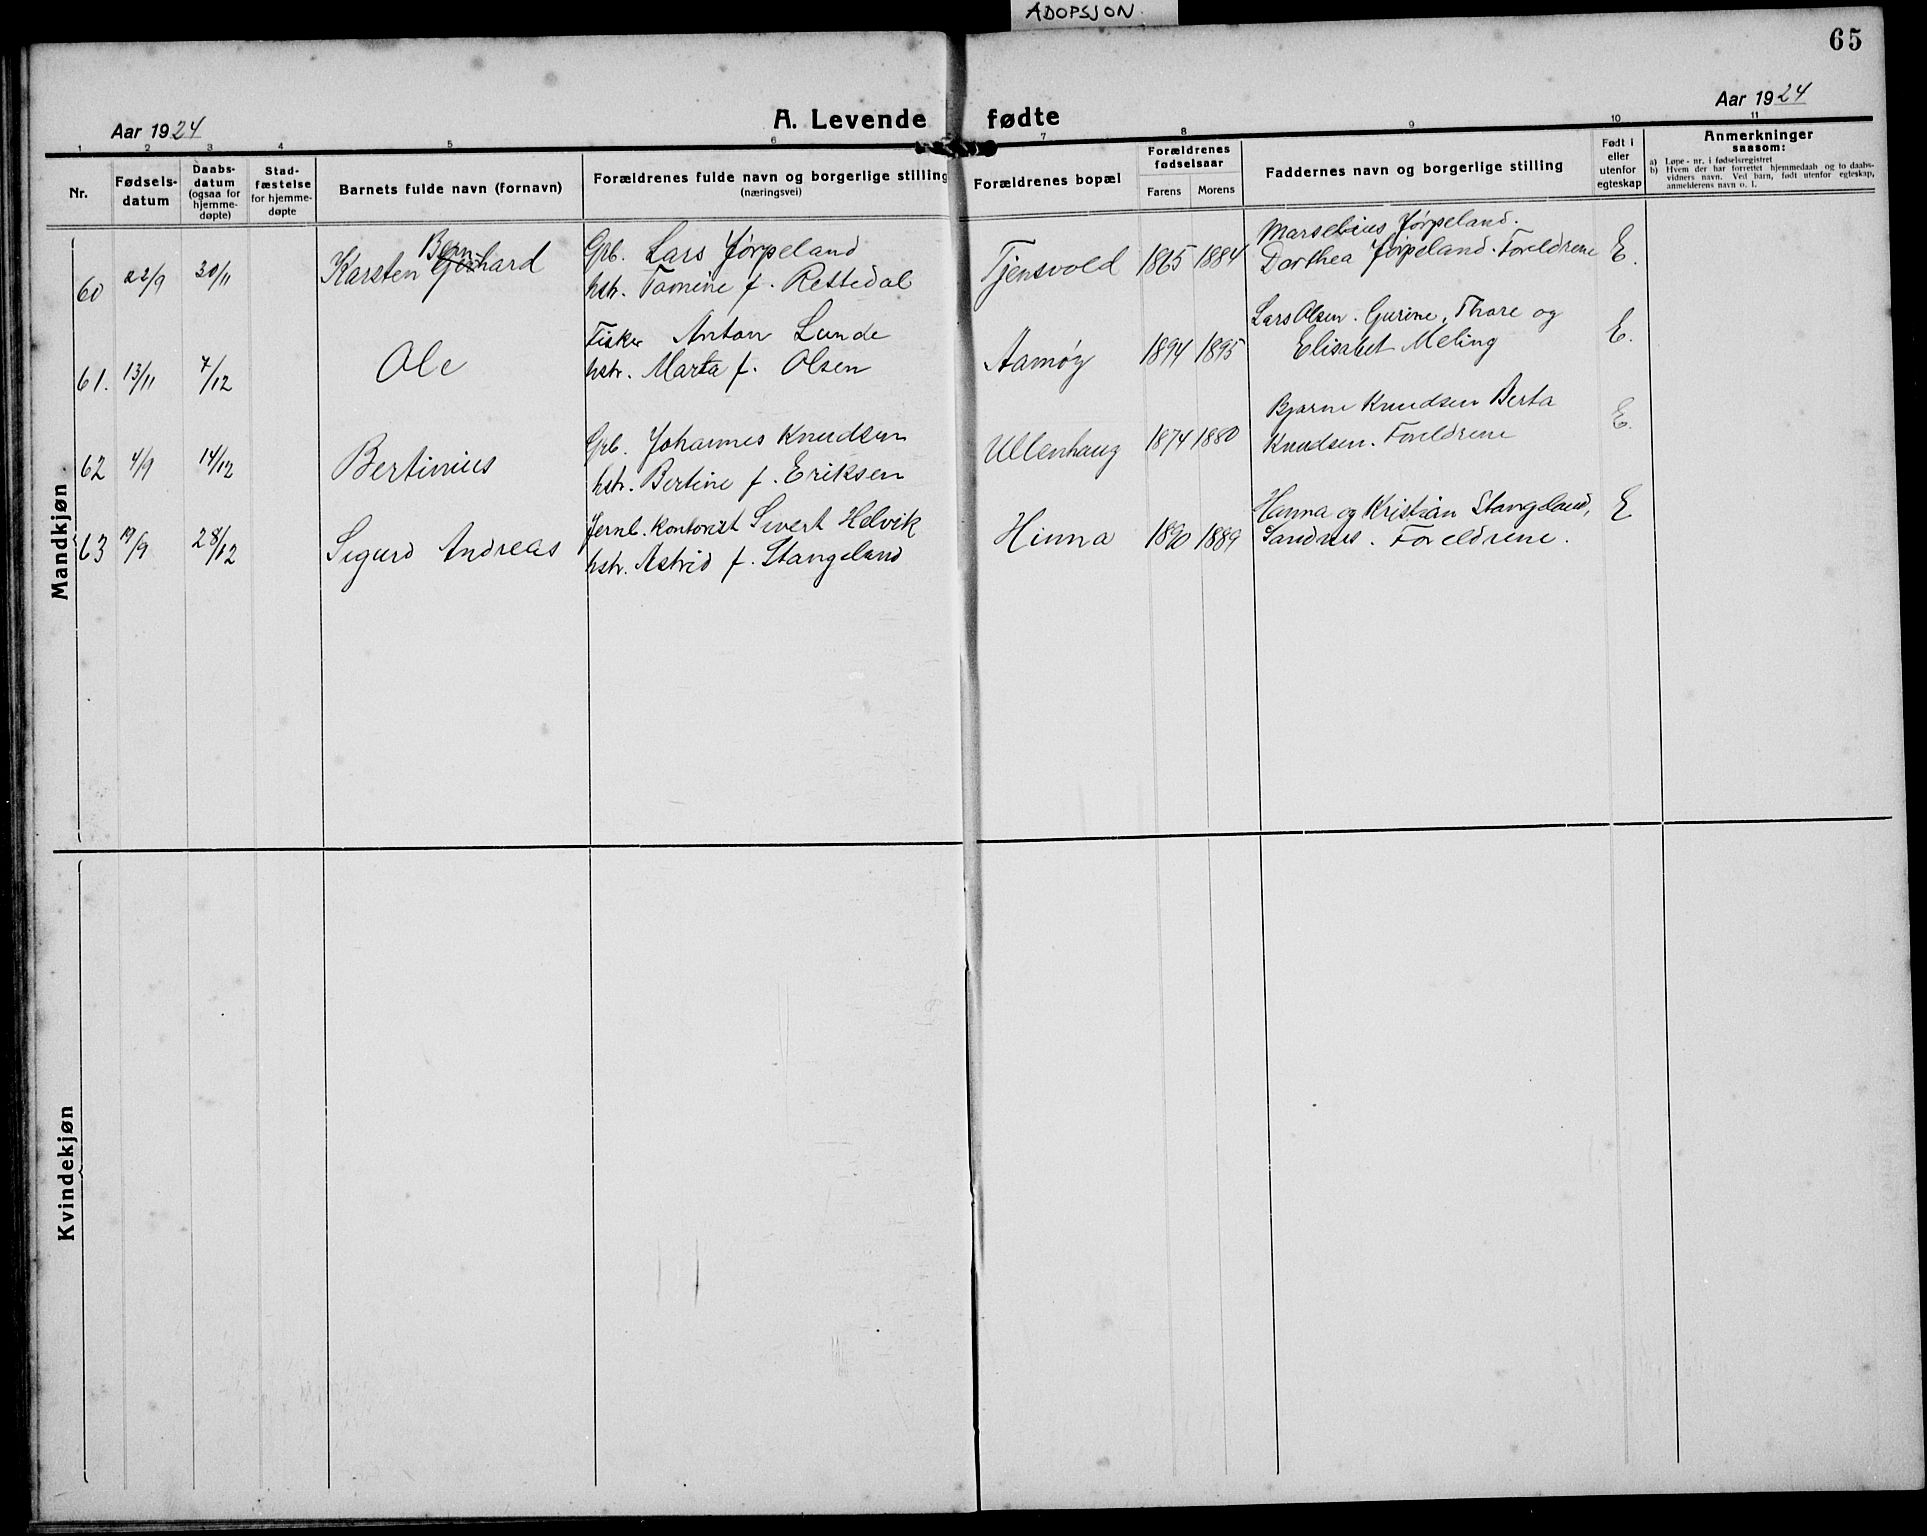 ADOPSJON.
65
Aar 1924
A. Levende fødte
Aar 1924
1 2 3 4 5 6 7 8 9 10 11
Nr.
Fødsels-
datum
Daabs-
datum
(ogsaa for
hjemme-
døpte)
Stad-
fæstelse
for hjemme-
døpte
Barnets fulde navn (fornavn)
Forældrenes fulde navn og borgerlige stilling
(næringsvei)
Forældrenes bopæl
Forældrenes
fødselsaar
Farens Morens
Faddernes navn og borgerlige stilling
Født i
eller
utenfor
egteskap
Anmerkninger
saasom:
a) Løpe-nr. i fødselsregistret
b) Hvem der har forrettet hjemmedaab og to daabs-
vidners navn. Ved barn, født utenfor egteskap,
anmelderens navn o. l.
Mandkjøn
60 22/9 30/11
Bern
Karsten Gerhard
Grb. Lars Jørpeland
hstr. Tomine f. Rettedal
Tjensvold 1865 1884
Marselius Jørpeland.
Dorthea Jørpeland. Foreldrene E.
61. 13/11 7/12 Ole
Fisker Anton Lunde
hstr. Marta f. Olsen
Aamøy 1894 1895
Lars Olsen. Gurine, Thore og
Elisabet Meling E.
62 4/9 14/12 Bertinius
Grb. Johannes Knudsen
hstr. Bertine f. Eriksen
Ullenhaug 1874 1880
Bjarne Knudsen Berta
Knudsen. Foreldrene E.
63 19/9 28/12 Sigurd Andreas
Jernb. kontorist Sivert Helvik
hstr. Astrid f. Stangeland
Hinna 1890 1889
Hanna og Kristian Stangeland,
Sandnes. Foreldrene. E
Kvindekjøn